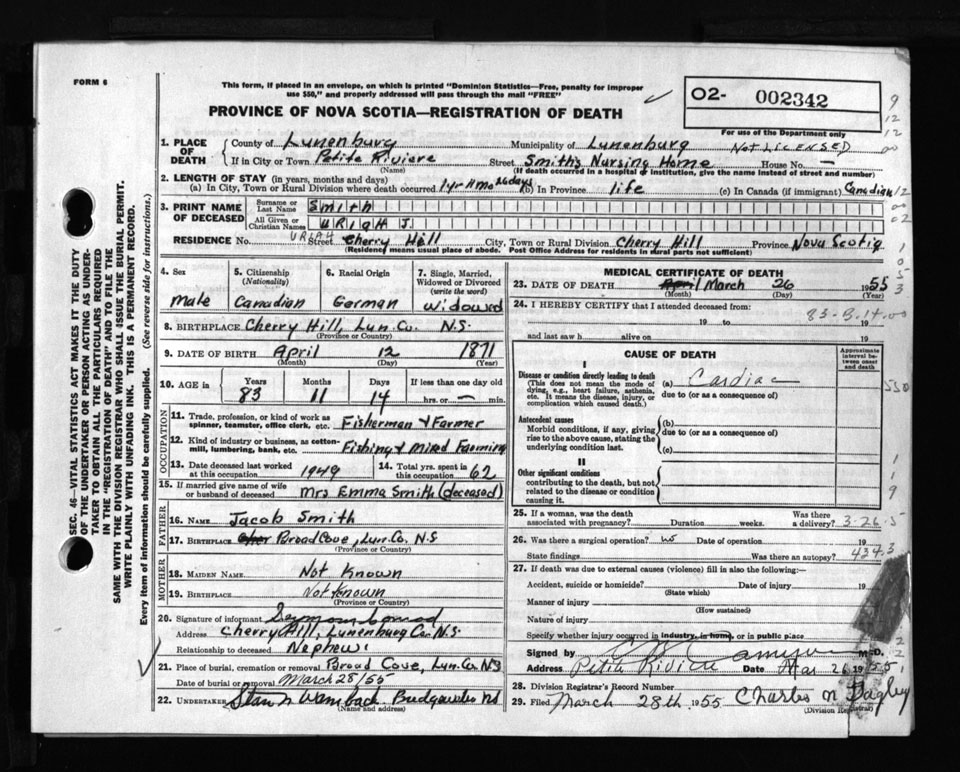 FORM 6
This form, if placed in an envelope, on which is printed "Dominion Statistics—Free, penalty for improper
use $50," and properly addressed will pass through the mail "FREE"
PROVINCE OF NOVA SCOTIA—REGISTRATION OF DEATH
O2- 002342
For use of the Department only
NOT LICENSED
1. PLACE OF DEATH
County of Lunenburg Municipality of Lunenburg
If in City or Town Petite Riviere Street Smith's Nursing Home House No. —
(Name) (If death occurred in a hospital or institution, give the name instead of street and number)
2. LENGTH OF STAY (in years, months and days)
(a) In City, Town or Rural Division where death occurred 1 yr 11 mo 26 days (b) In Province life (c) In Canada (if immigrant) Canadian
3. PRINT NAME OF DECEASED
Surname or Last Name Smith
All Given or Christian Names URIGH J.
URIAH
RESIDENCE No. Street Cherry Hill City, Town or Rural Division Cherry Hill Province Nova Scotia
(Residence means usual place of abode. Post Office Address for residents in rural parts not sufficient)
4. Sex
male
5. Citizenship
(Nationality)
Canadian
6. Racial Origin
German
7. Single, Married, Widowed or Divorced
(write the word)
Widowed
8. BIRTHPLACE Cherry Hill, Lun. Co. N.S.
(Province or Country)
9. DATE OF BIRTH April 12 1871
(Month) (Day) (Year)
10. AGE in
Years Months Days If less than one day old
83 11 14 hrs. or — min.
OCCUPATION
11. Trade, profession, or kind of work as spinner, teamster, office clerk, etc. Fisherman & Farmer
12. Kind of industry or business, as cotton-mill, lumbering, bank, etc. Fishing & Mixed Farming
13. Date deceased last worked at this occupation 1949
14. Total yrs. spent in this occupation 62
15. If married give name of wife or husband of deceased Mrs Emma Smith (deceased)
FATHER
16. NAME Jacob Smith
17. BIRTHPLACE Broad Cove, Lun. Co. N.S
(Province or Country)
MOTHER
18. MAIDEN NAME Not Known
19. BIRTHPLACE Not Known
(Province or Country)
20. Signature of informant Seymour Conrad
Address Cherry Hill, Lunenburg Co. N.S.
Relationship to deceased Nephew
21. Place of burial, cremation or removal Broad Cove, Lun. Co. N.S
Date of burial or removal March 28/55
22. UNDERTAKER Wambach Bridgewater NS
(Name and address)
MEDICAL CERTIFICATE OF DEATH
23. DATE OF DEATH April March 26 1955
(Month) (Day) (Year)
24. I HEREBY CERTIFY that I attended deceased from:
19 to 19
and last saw h alive on 19
CAUSE OF DEATH
Approximate interval between onset and death
I
Disease or condition directly leading to death
(This does not mean the mode of dying, e.g., heart failure, asthenia, etc. It means the disease, injury, or complication which caused death.)
(a) Cardiac
due to (or as a consequence of)
Antecedent causes
Morbid conditions, if any, giving rise to the above cause, stating the underlying condition last.
(b)
due to (or as a consequence of)
(c)
II
Other significant conditions
contributing to the death, but not related to the disease or condition causing it.
25. If a woman, was the death associated with pregnancy? Duration weeks. Was there a delivery? 3-26-5
26. Was there a surgical operation? no Date of operation 19
State findings Was there an autopsy?
434.3
27. If death was due to external causes (violence) fill in also the following:—
Accident, suicide or homicide? Date of injury 19
(State which)
Manner of injury
(How sustained)
Nature of injury
Specify whether injury occurred in industry, in home, or in public place
Signed by M.D.
Address Petite Riviere Date Mar 26 1955
28. Division Registrar's Record Number
29. Filed March 28th 1955 Charles N Bagley
(Division Registrar)
SEC. 46—VITAL STATISTICS ACT MAKES IT THE DUTY
OF THE UNDERTAKER OR PERSON ACTING AS UNDER-
TAKER TO OBTAIN ALL THE PARTICULARS REQUIRED
IN THE "REGISTRATION OF DEATH" AND TO FILE THE
SAME WITH THE DIVISION REGISTRAR WHO SHALL ISSUE THE BURIAL PERMIT.
WRITE PLAINLY WITH UNFADING INK. THIS IS A PERMANENT RECORD.
Every item of information should be carefully supplied. (See reverse side for instructions.)